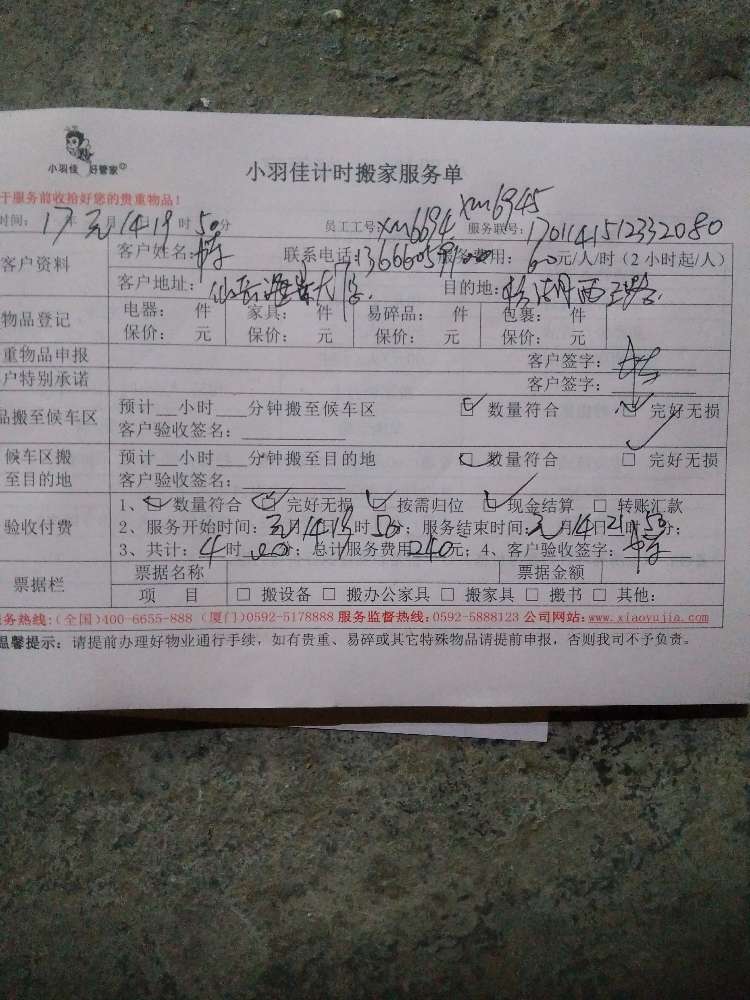 小羽佳 好管家
小羽佳计时搬家服务单
于服务前收拾好您的贵重物品！
时间：17年元月14 19时50分 员工工号：xm6694 xm6945 服务联号：1701141512332080
客户资料 客户姓名： 联系电话： 服务费用：60元/人/时（2小时起/人）
客户地址： 目的地：
物品登记 电器： 件 家具： 件 易碎品： 件 包裹： 件
保价： 元 保价： 元 保价： 元 保价： 元
重物品申报 客户签字：
户特别承诺 客户签字：
品搬至候车区 预计__小时___分钟搬至候车区 ☑ 数量符合 ☑ 完好无损
客户验收签名：
候车区搬至目的地 预计__小时___分钟搬至目的地 ☑ 数量符合 □ 完好无损
客户验收签名：
验收付费 1、☑ 数量符合 ☑ 完好无损 ☑ 按需归位 ☑ 现金结算 □ 转账汇款
2、服务开始时间：元月14日19时50分；服务结束时间：元月14日21时50分；
3、共计：4时 分；总计服务费用240元；4、客户验收签字：
票据栏 票据名称 票据金额
项 目 □ 搬设备 □ 搬办公家具 □ 搬家具 □ 搬书 □ 其他：
务热线：(全国)400-6655-888 (厦门)0592-5178888 服务监督热线：0592-5888123 公司网站：www.xiaoyujia.com
温馨提示：请提前办理好物业通行手续，如有贵重、易碎或其它特殊物品请提前申报，否则我司不予负责。